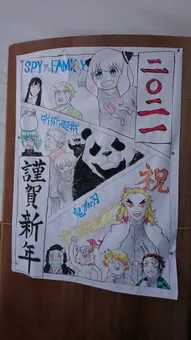 SPY×FAMILY
二〇二一
呪術廻戦
祝
鬼滅の刃
謹賀新年